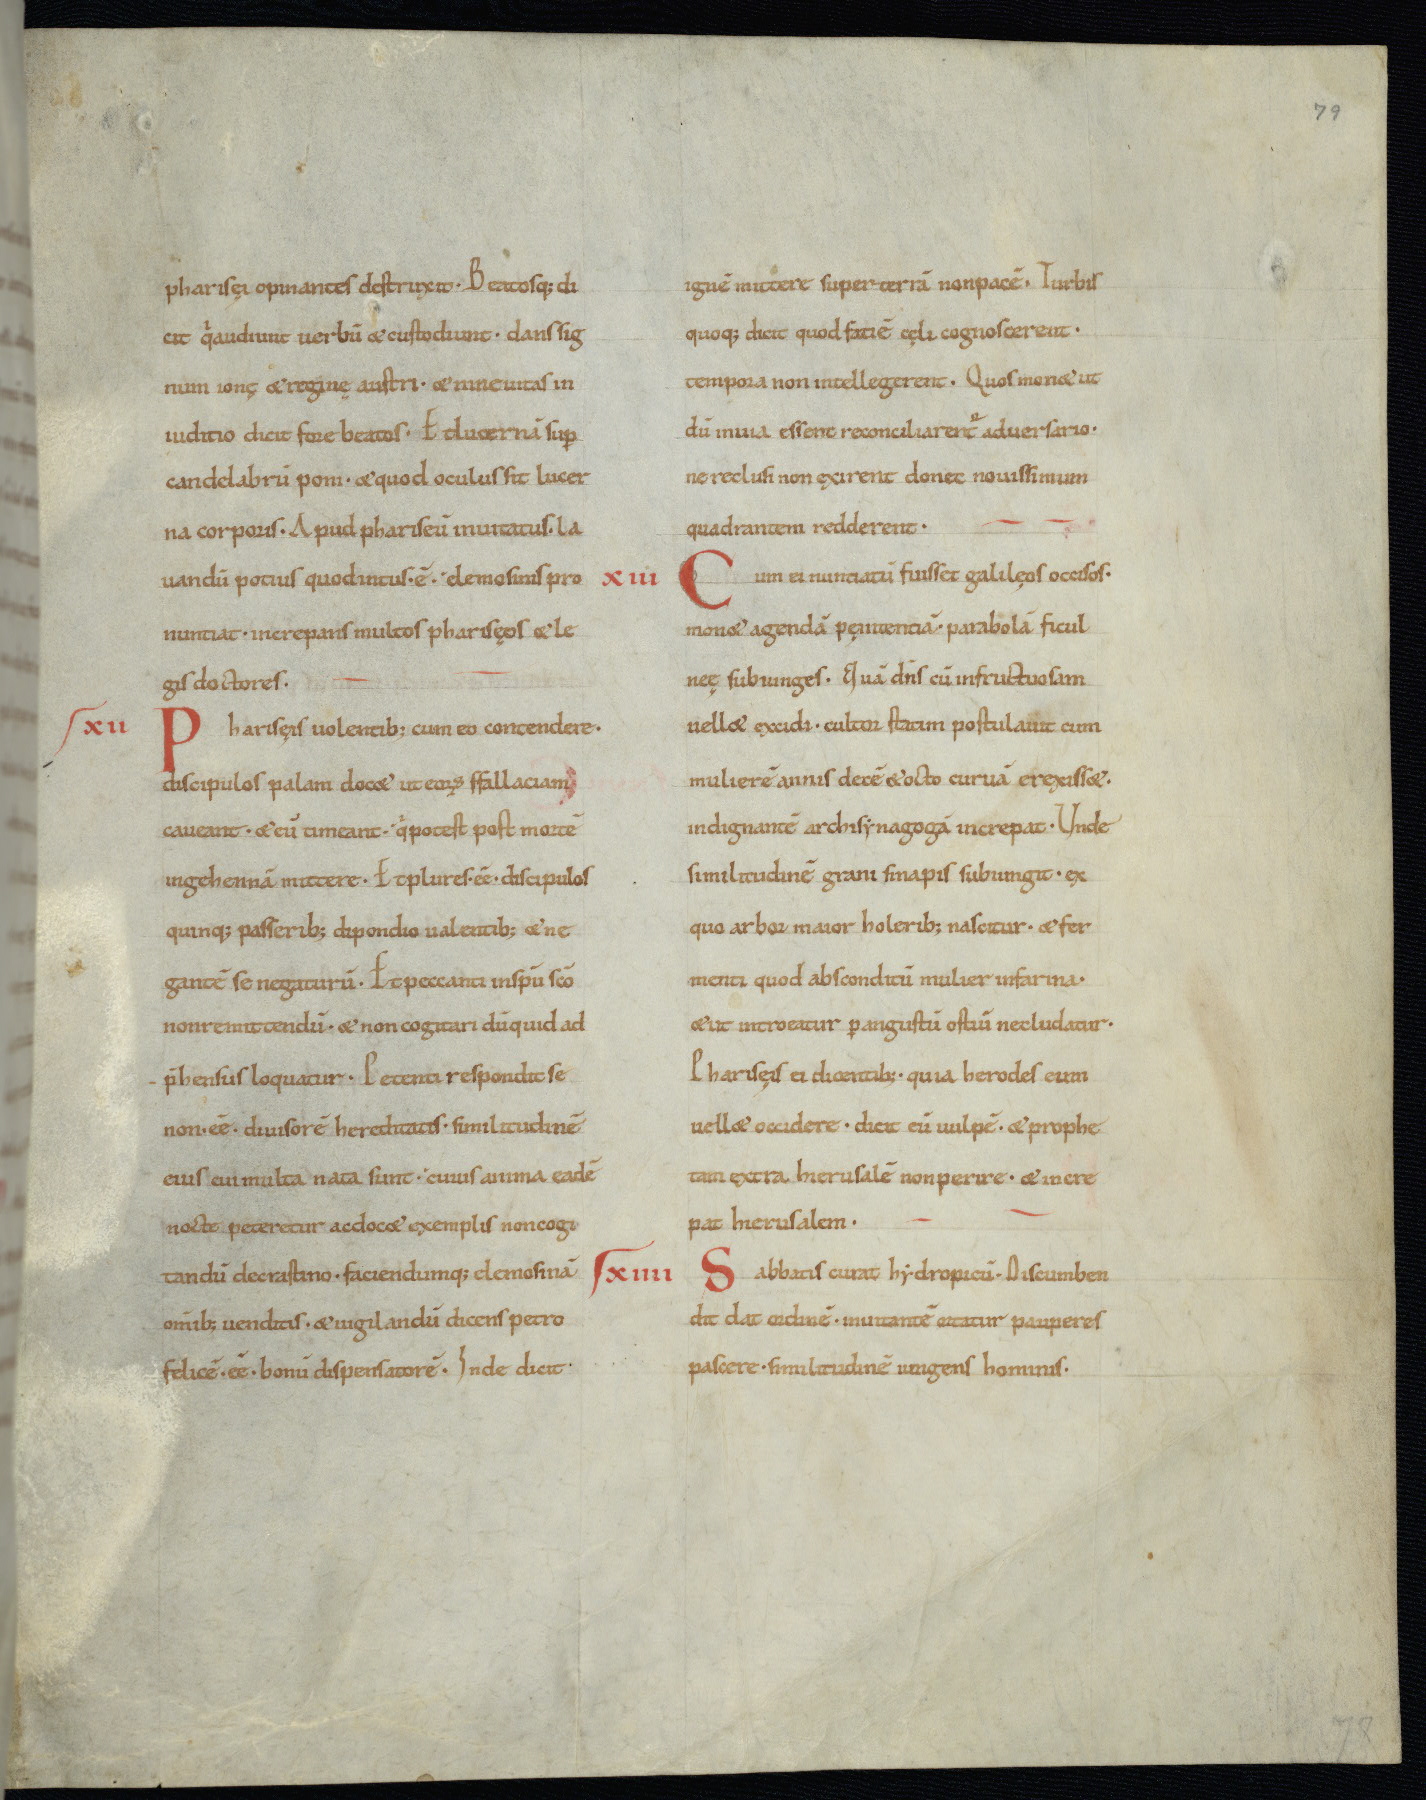 79
pharisęi opinantes destruxit· Beatosq; di
cit q̓ audiunt uerbū & custodiunt· dans sig
num ionę & reginę austri· & nineuitas in
iuditio dicit fore beatos· Et lucernā sup̱
candelabrū poni· & quod oculus sit lucer
na corporis· Apud phariseū inuitatus· la
uandū potius quod intus·ē· elemosinis pro
nuntiat· increpans multos pharisęos & le
gis doctores·
xii Pharisęis uolentib; cum eo contendere·
discipulos palam doc& ut eoꝝ fallaciam
caueant· & eū timeant· q̓ potest post mortē
in gehennā mittere· Et plures·eē· discipulos
quinq; passerib; dipondio ualentib; & ne
gantē se negaturū· Et peccanti in sp̄u sc̄o
non remittendū· & non cogitari dū quid ad
p̄hensus loquatur· Petenti respondit se
non·eē· diuisorē hereditatis· similitudinē
eius cui multa nata sunt· cuius anima eadē
nocte peteretur ac doc& exemplis non cogi
tandū de crastino· faciendumq; elemosinā
om̄ib; uenditis· & uigilandū dicens petro
felicē·eē· bonū dispensatorē· Inde dicit
ignē mittere super terrā non pacē· Turbis
quoq; dicit quod faciē cęli cognoscerent·
tempora non intellegerent· Quos mon& ut
dū in uia essent reconciliarent᷒ aduersario·
ne reclusi non exirent donec nouissimum
quadrantem redderent·
xiii Cum ei nunciatū fuisset galilęos occisos·
mon& agendā pęnitentiā· parabolā ficul
neę subiunges· Quā dn̄s cū infructuosam
uell& excidi· cultor statim postulauit cum
mulierē annis decē & octo curuā erexiss&·
indignantē archisẏnagogā increpat· Unde
similitudinē grani sinapis subiungit· ex
quo arbor maior holerib; nascitur· & fer
menti quod absconditū mulier in farina·
& ut introeatur p̱ angustū ostiū ne cludatur·
Pharisęis ei dicentib;· quia herodes eum
uell& occidere· dicit eū uulpē· & prophe
tam extra hierusalē non perire· & incre
pat hierusalem·
xiiii Sabbatis curat hẏdropicū· Discumben
dit dat ordinē· inuitantē ortatur pauperes
pascere· similitudinē iungens hominis·
78